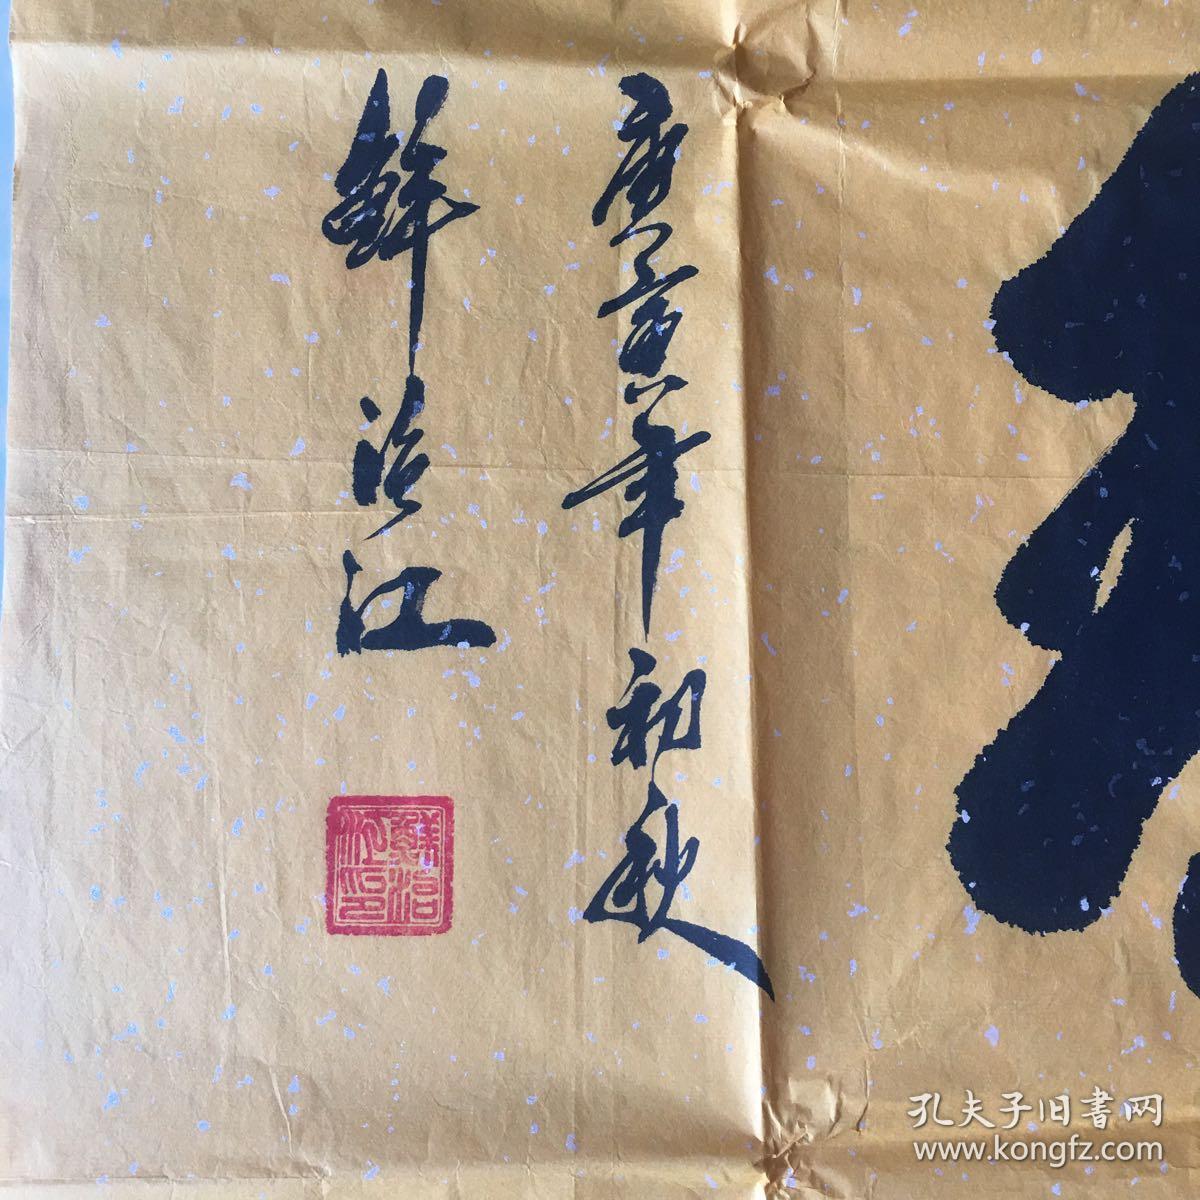 庚寅年初秋
鲜治江
鮮治江印
孔夫子旧書网
www.kongfz.com